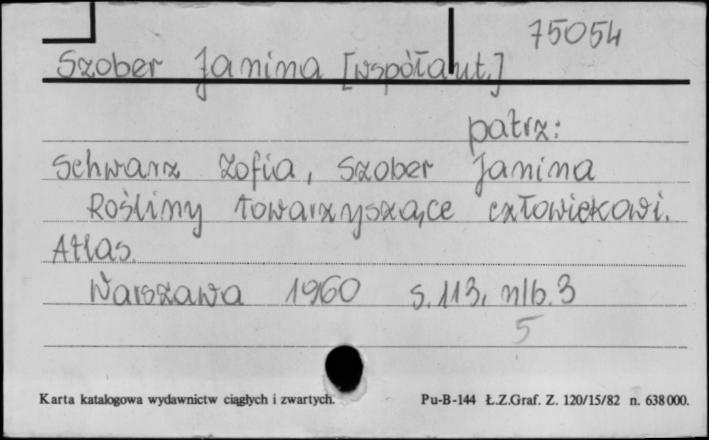 75054
Szober Janina [współaut.]
patrz:
Schwarz Zofia, Szober Janina
Rośliny towarzyszące człowiekowi.
Atlas.
Warszawa 1960 s. 113, nlb. 3
5
Karta katalogowa wydawnictw ciągłych i zwartych. Pu-B-144 Ł.Z.Graf. Z. 120/15/82 n. 638000.